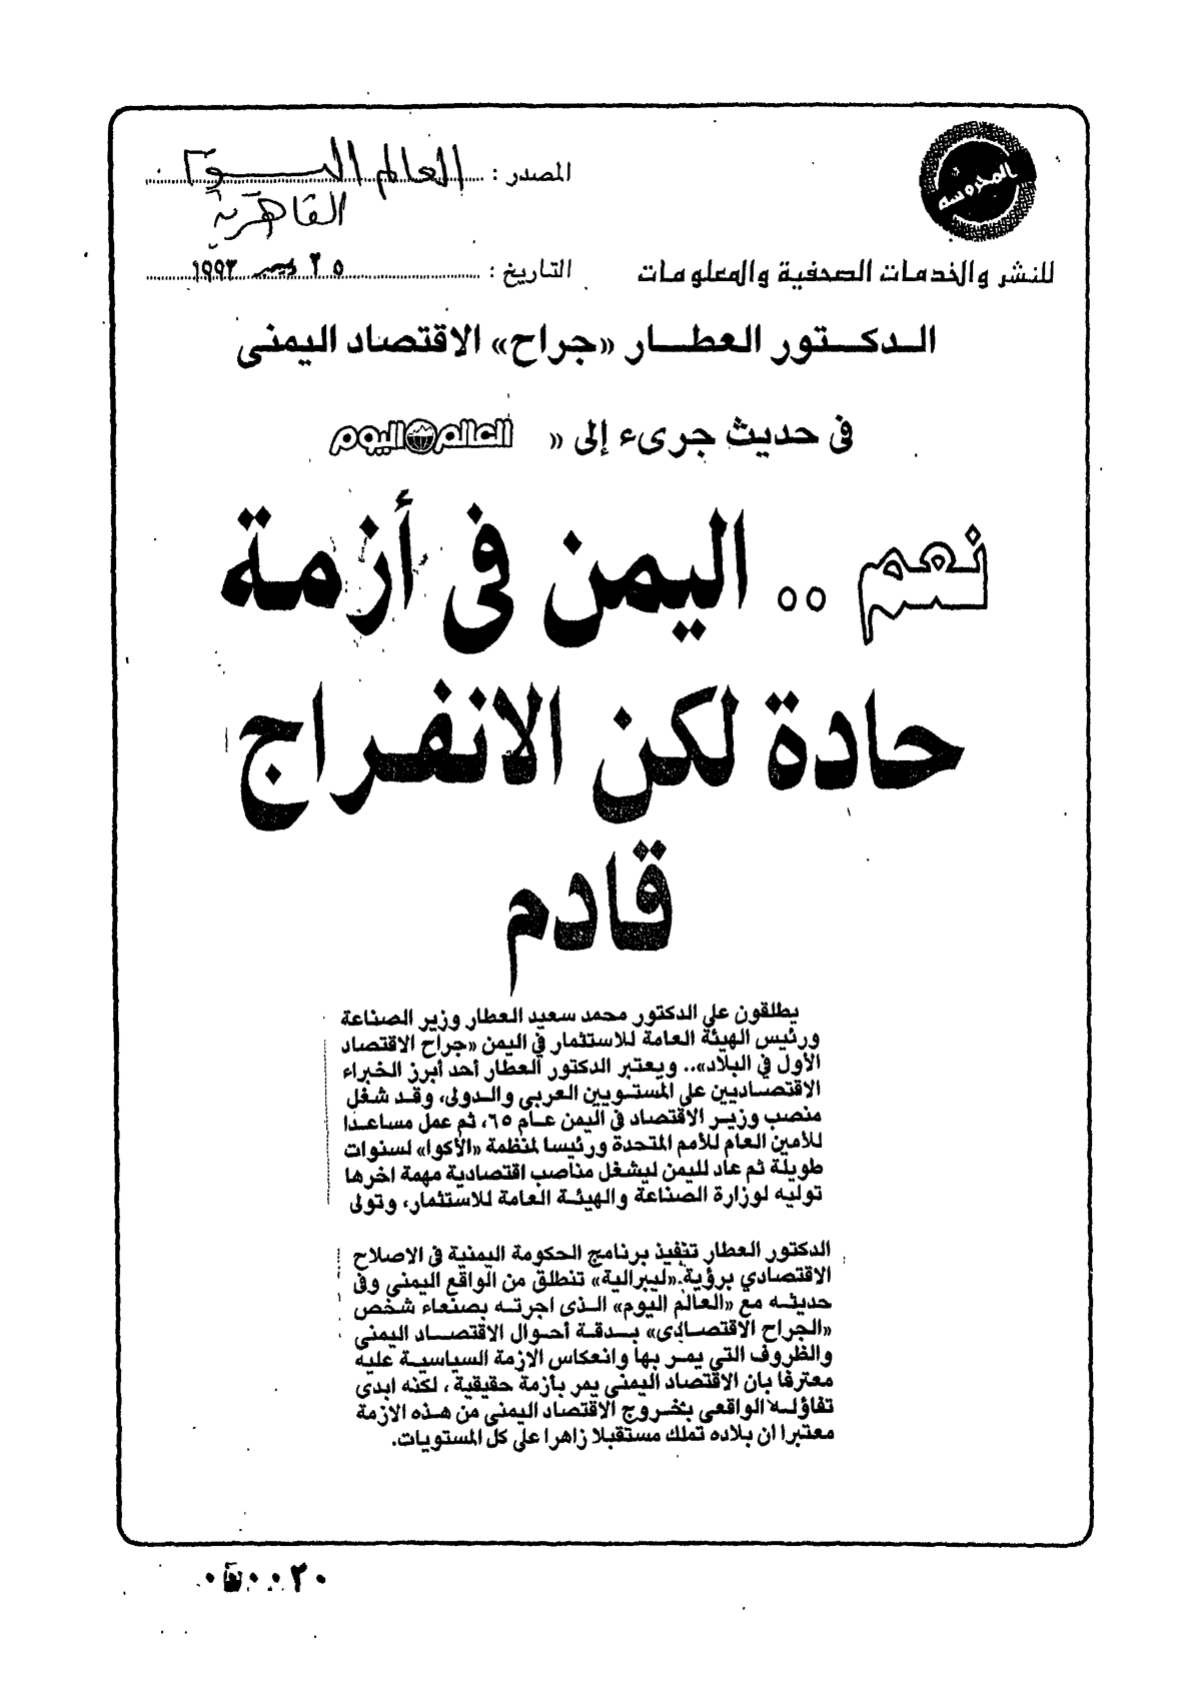 المحروسه
المصدر : العالم اليوم
القاهرية
للنشر والخدمات الصحفية والمعلومات
التاريخ : ٢٥ ديسمبر ١٩٩٣
الـدكـــتور العطـــار «جراح» الاقتصاد اليمنى
فى حديث جرىء إلى « العالم اليوم
نعم .. اليمن فى أزمة
حادة لكن الانفراج
قادم
يطلقون على الدكتور محمد سعيد العطار وزير الصناعة
ورئيس الهيئة العامة للاستثمار فى اليمن «جراح الاقتصاد
الأول فى البلاد».. ويعتبر الدكتور العطار أحد أبرز الخبراء
الاقتصاديين على المستويين العربى والدولى، وقد شغل
منصب وزير الاقتصاد فى اليمن عام ٦٥، ثم عمل مساعدا
للأمين العام للأمم المتحدة ورئيسا لمنظمة «الأكوا» لسنوات
طويلة ثم عاد لليمن ليشغل مناصب اقتصادية مهمة اخرها
توليه لوزارة الصناعة والهيئة العامة للاستثمار، وتولى
الدكتور العطار تنفيذ برنامج الحكومة اليمنية فى الاصلاح
الاقتصادي برؤية «ليبرالية» تنطلق من الواقع اليمنى وفى
حديثه مع «العالم اليوم» الذى اجرته بصنعاء شخص
«الجراح الاقتصادى» بدقة أحوال الاقتصاد اليمنى
والظروف التي يمر بها وانعكاس الازمة السياسية عليه
معترفا بان الاقتصاد اليمنى يمر بأزمة حقيقية ، لكنه ابدى
تفاؤله الواقعى بخروج الاقتصاد اليمنى من هذه الازمة
معتبرا ان بلاده تملك مستقبلا زاهرا على كل المستويات.